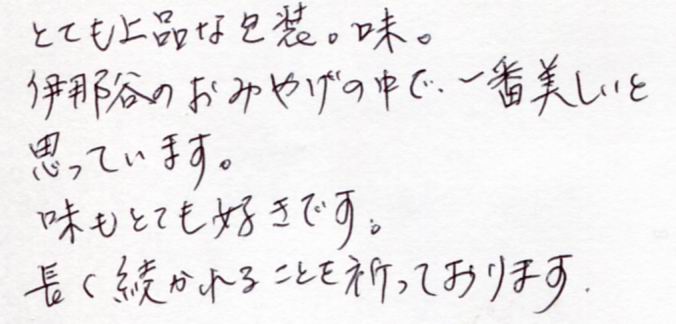 とても上品な包装。味。
伊那谷のおみやげの中で、一番美しいと
思っています。
味もとても好きです。
長く続かれることを祈っております.